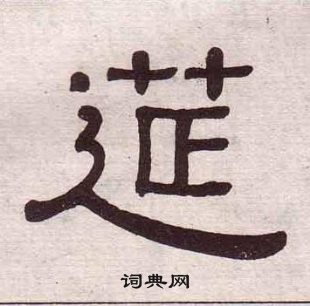 莚
词典网